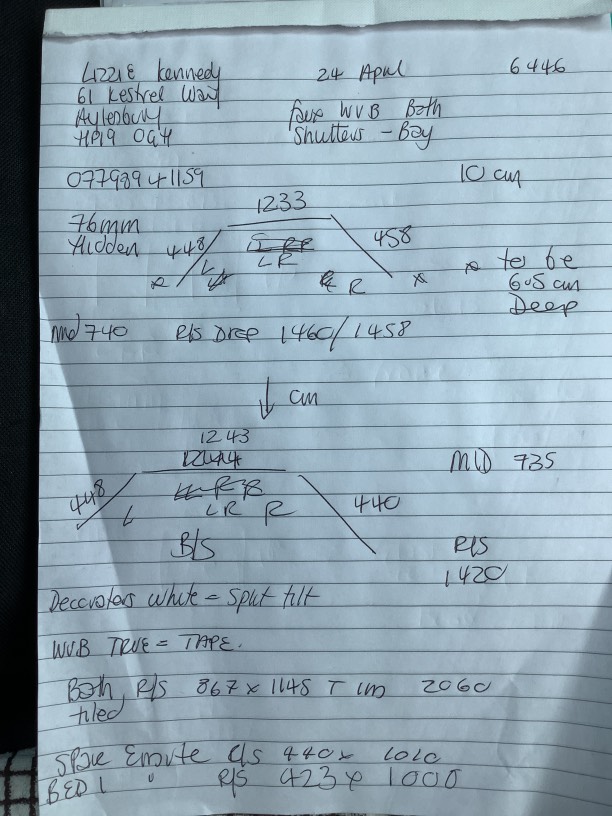 Lizzie Kennedy 24 April 6446
61 Kestrel Way
Aylesbury faux WVB Both
HP19 0GH Shutters - Bay
07798941159 10 cm
1233
76mm
Hidden 448 458
L R
L R
* * * to be
6.5 cm
Deep
Mid 740 R/S Drop 1460/1458
↓ cm
1243
MID 735
448 440
L LR R
B/S R/S
1420
Decorators white = split tilt
WVB TRUE = TAPE.
Both R/S 867 x 1145 T 2060
tiled
C/S 440 x 1010
BED 1 " R/S 423 x 1000